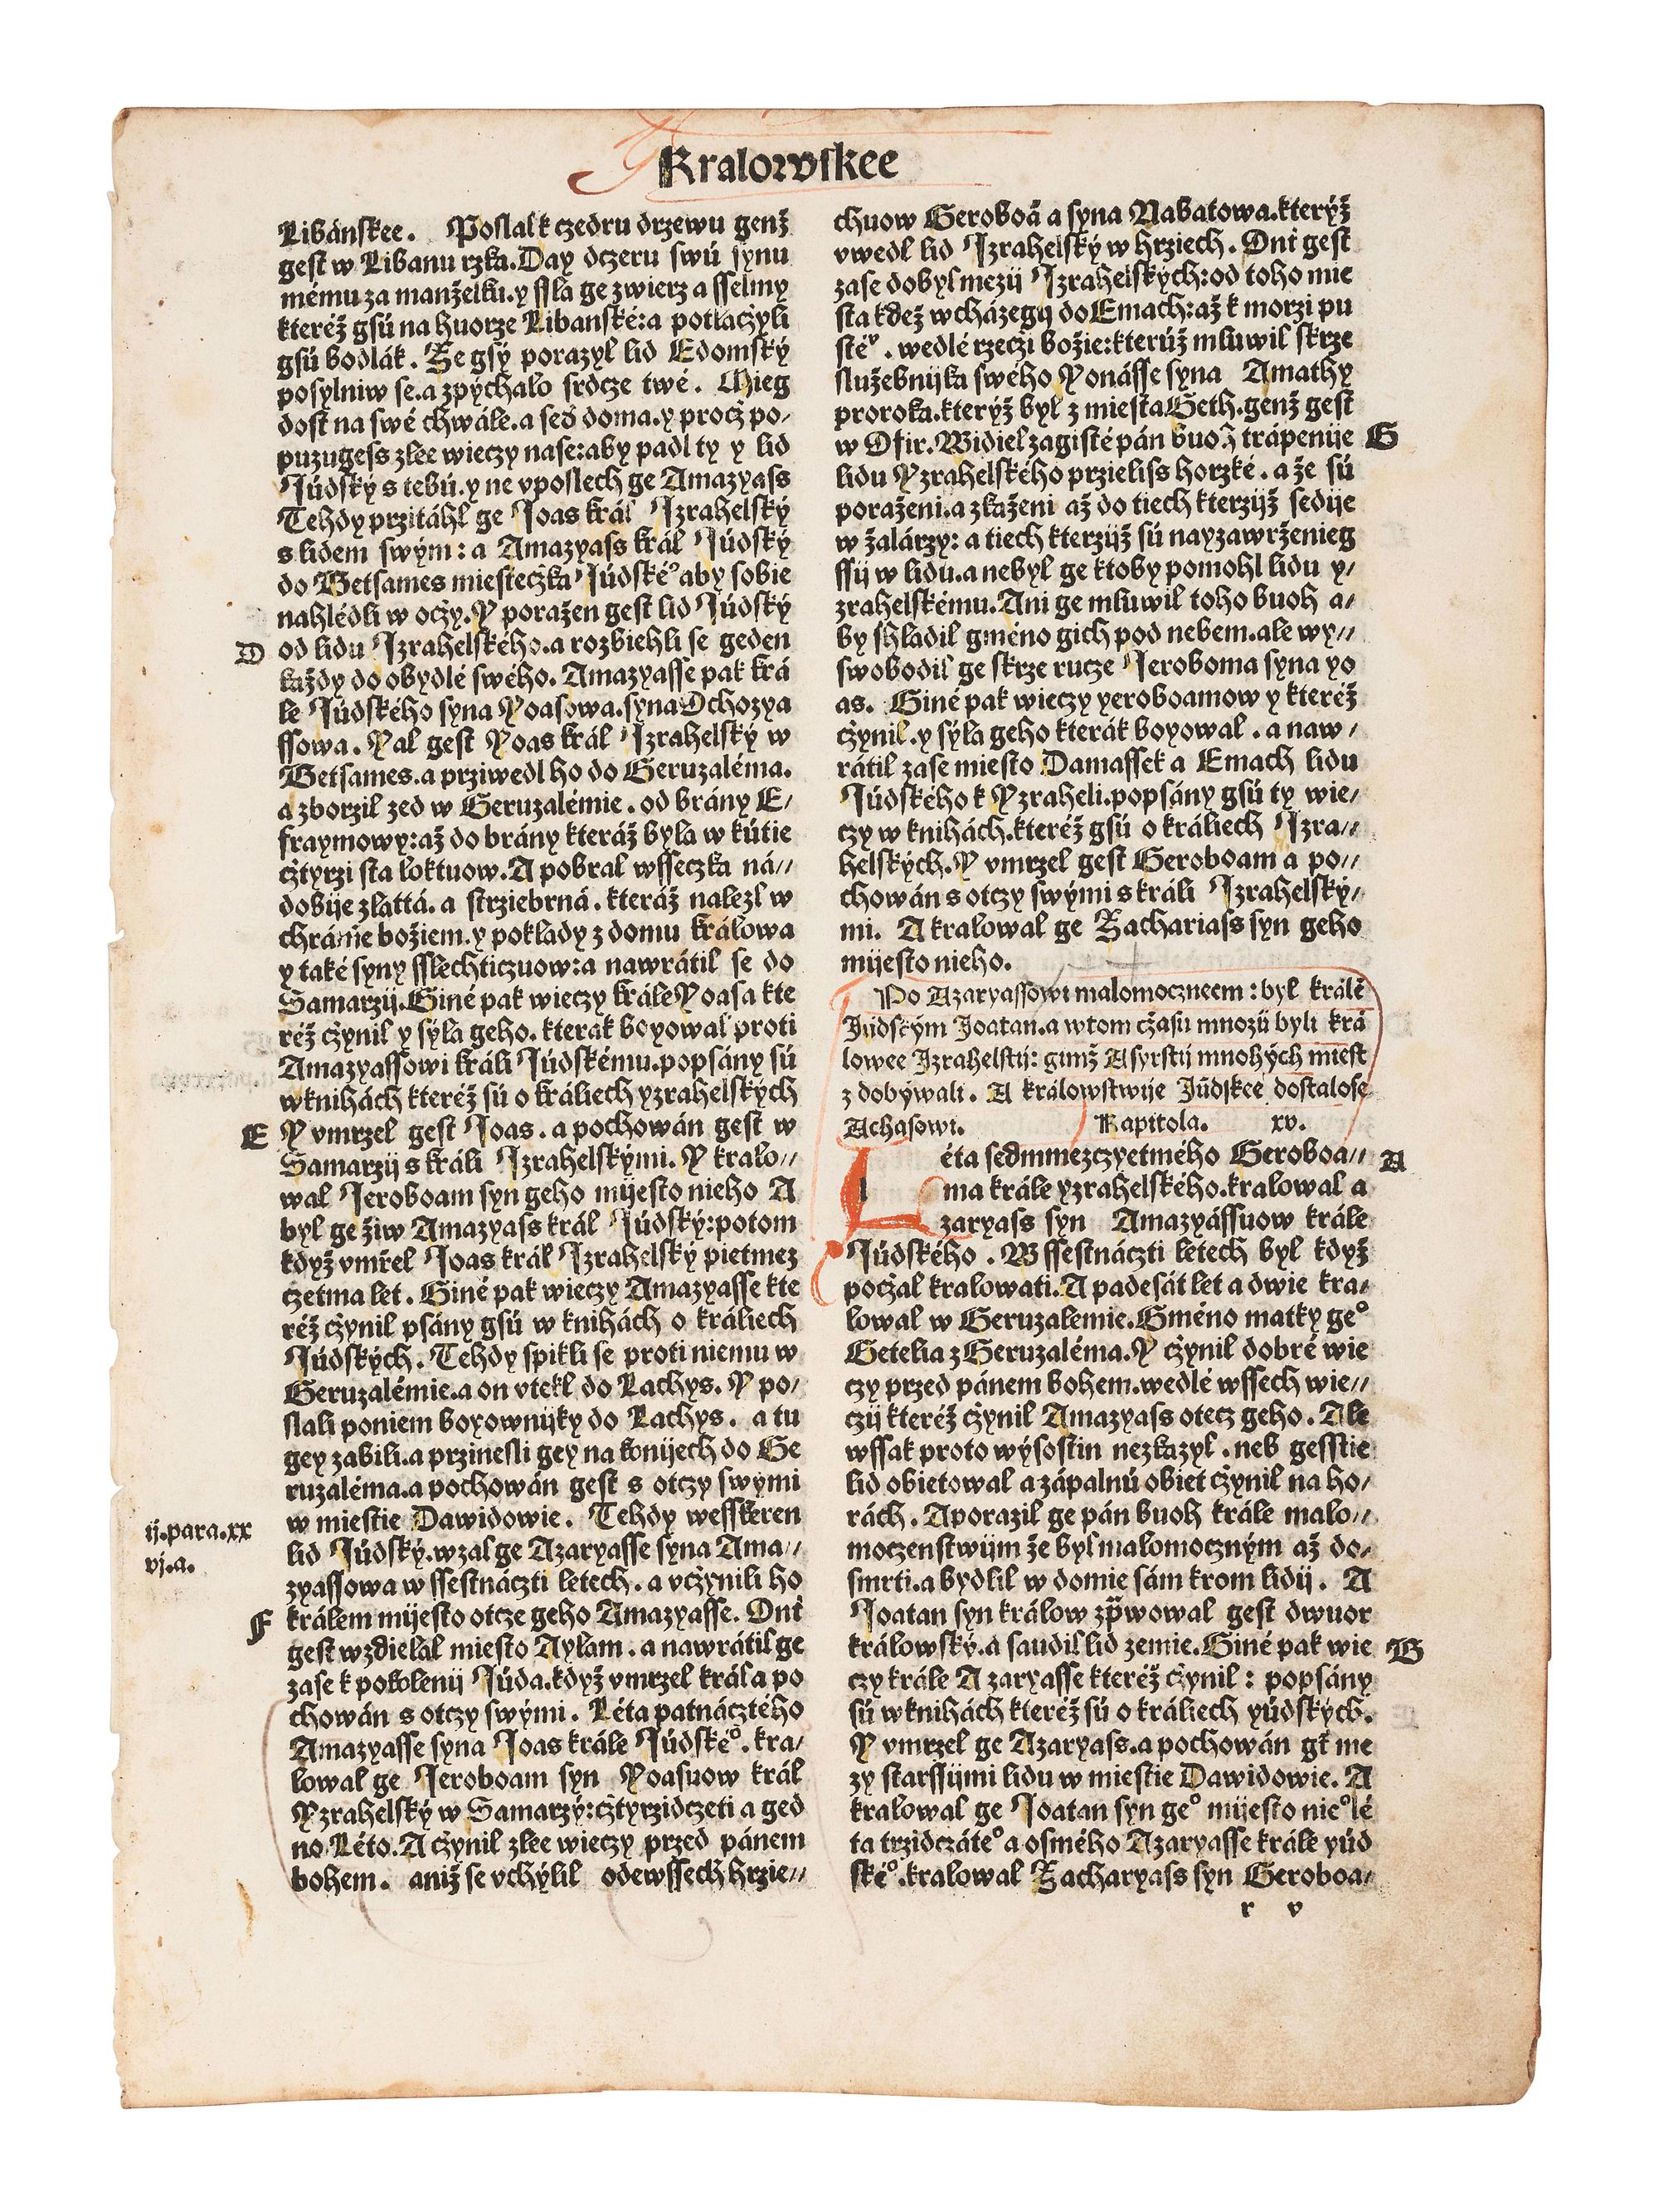 Kralowskee
Libánskee. Poslal k czedru drzewu genž
gest w Libanu rzka. Day dczeru swú synu
mému za manželku. y ssla ge zwierz a sselmy
kteréž gsú na huorze Libanské: a potlačyli
gsú bodlák. Že gsy porazyl lid Edomský
posylniw se. a zpýchalo srdcze twé. Mieg
dost na swé chwále. a seď doma. y procž po⸗
puzugess zlee wieczy nase: aby padl ty y lid
Júdský s tebú. y ne vposlech ge Amazyass
Tehdy przitáhl ge Joas král Jzrahelský
s lidem swým: a Amazyass král Júdský
do Betsames miesteczka Júdskéº aby sobie
nahlédli w oczy. Y poražen gest lid Júdský
D od lidu Jzrahelského. a rozbiehli se geden
každy do obydlé swého. Amazyasse pak krá
le Júdského syna Yoasowa. syna Ochozya
ssowa. Yal gest Yoas král Jzrahelský w
Betsames. a prziwedl ho do Geruzaléma.
a zborzil zed w Geruzalémie. od brány E⸗
fraymowy: až do brány kteráž byla w kútie
cztyrzi sta loktuow. A pobral wsseczka ná⸗
dobije zlattá. a strziebrná. kteráž nalezl w
chrámie božiem. y poklady z domu králowa
y také syny sslechticzuow: a nawrátil se do
Samarzij. Giné pak wieczy krále Yoasa kte
réž czynil y sýla geho. kterak boyowal proti
Amazyassowi králi Júdskému. popsány sú
w knihách kteréž sú o králiech yzrahelských
E Y vmrzel gest Joas. a pochowán gest w
Samarzij s králi Jzrahelskými. Y kralo⸗
wal Jeroboam syn geho mijesto nieho A
byl ge žiw Amazyass král Júdský: potom
když vmřel Joas král Jzrahelský pietmez
czetma let. Giné pak wieczy Amazyasse kte
réž czynil psány gsú w knihách o králiech
Júdských. Tehdy spikli se proti niemu w
Geruzalémie. a on vtekl do Lachys. Y po⸗
slali poniem boyownijky do Lachys. a tu
gey zabili. a przinesli gey na konijech do Ge
ruzaléma. a pochowán gest s otczy swými
w miestie Dawidowie. Tehdy wesskeren
ij.para.xx
vj.a.
lid Júdský. wzal ge Azaryasse syna Ama⸗
zyassowa w ssestnáczti letech. a vczynili ho
F králem mijesto otcze geho Amazyasse. Onť
gest wzdielal miesto Aylam. a nawrátil ge
zase k pokolenij Júda. když vmrzel král a po
chowán s otczy swými. Léta patnácztého
Amazyasse syna Joas krále Júdskéº. kra⸗
lowal ge Jeroboam syn Yoasuow král
Yzrahelský w Samarzý: cztyrzidczeti a ged
no Léto. A czynil zlee wieczy przed pánem
bohem. aniž se vchýlil odewssech hrzie⸗
chuow Geroboā a syna Nabatowa. kterýž
vwedl lid Jzrahelský w hrziech. Onť gest
zase dobyl mezij Jzrahelských: od toho mie
sta kdež wcházegij do Emach: až k morzi pu
stéº. wedlé rzeczi božie: kterúž mluwil skrze
služebnijka swého Yonásse syna Amathy
proroka. kterýž byl z miesta Geth. genž gest
w Ofir. Widiel zagisté pán buoh trápenije G
lidu Yzrahelského przieliss horzké. a že sú
poraženi. a zkaženi až do tiech kterzijž sedije
w žalárzy: a tiech kterzijž sú nayzawrženieg
ssij w lidu. a nebyl ge ktoby pomohl lidu y⸗
zrahelskému. Ani ge mluwil toho buoh a⸗
by shladil gméno gich pod nebem. ale wy⸗
swobodil ge skrze rucze Jeroboma syna yo
as. Giné pak wieczy yeroboamow y kteréž
czynil. y sýla geho kterák boyowal. a naw⸗
rátil zase miesto Damassek a Emach lidu
Júdského k Yzraheli. popsány gsú ty wie⸗
czy w knihách. kteréž gsú o králiech Jzra⸗
helských. Y vmrzel gest Geroboam a po⸗
chowán s otczy swými s králi Jzrahelský⸗
mi. A kralowal ge Zachariass syn geho
mijesto nieho.
Po Azaryassowi malomoczneem: byl králē
Júdským Joatan. a w tom czasu mnozij byli krá
lowee Jzrahelstij: gimž Asyrstij mnohých miest
z dobýwali. A králowstwije Júdskee dostalose
Achasowi. Kapitola. xv.
Léta sedmmezczyetmého Geroboa⸗ A
ma krále yzrahelského. kralowal a
zaryass syn Amazyássuow krále
Júdského. W ssestnáczti letech byl když
poczal kralowati. A padesát let a dwie kra⸗
lowal w Geruzalemie. Gméno matky geº
Getelia z Geruzaléma. Y czynil dobré wie
czy przed pánem bohem. wedlé wssech wie⸗
czij kteréž czynil Amazyass otecz geho. Ale
wssak proto wýsostin nezkazyl. neb gesstie
lid obietowal a zápalnú obiet czynil na ho⸗
rách. A porazil ge pán buoh krále malo⸗
moczenstwijm že byl malomoczným až do⸗
smrti. a bydlil w domie sám krom lidij. A
Joatan syn králow zp̄wowal gest dwuor
králowský. a saudil lid zemie. Giné pak wie B
czy krále Azaryasse kteréž czynil: popsány
sú w knihách kteréž sú o králiech yúdských.
Y vmrzel ge Azaryass. a pochowán gť me
zy starssijmi lidu w miestie Dawidowie. A
kralowal ge Joatan syn geº mijesto nieº lé
ta trzidczátéº a osmého Azaryasse krále yúd
skéº. kralowal Zacharyass syn Geroboa⸗
r v